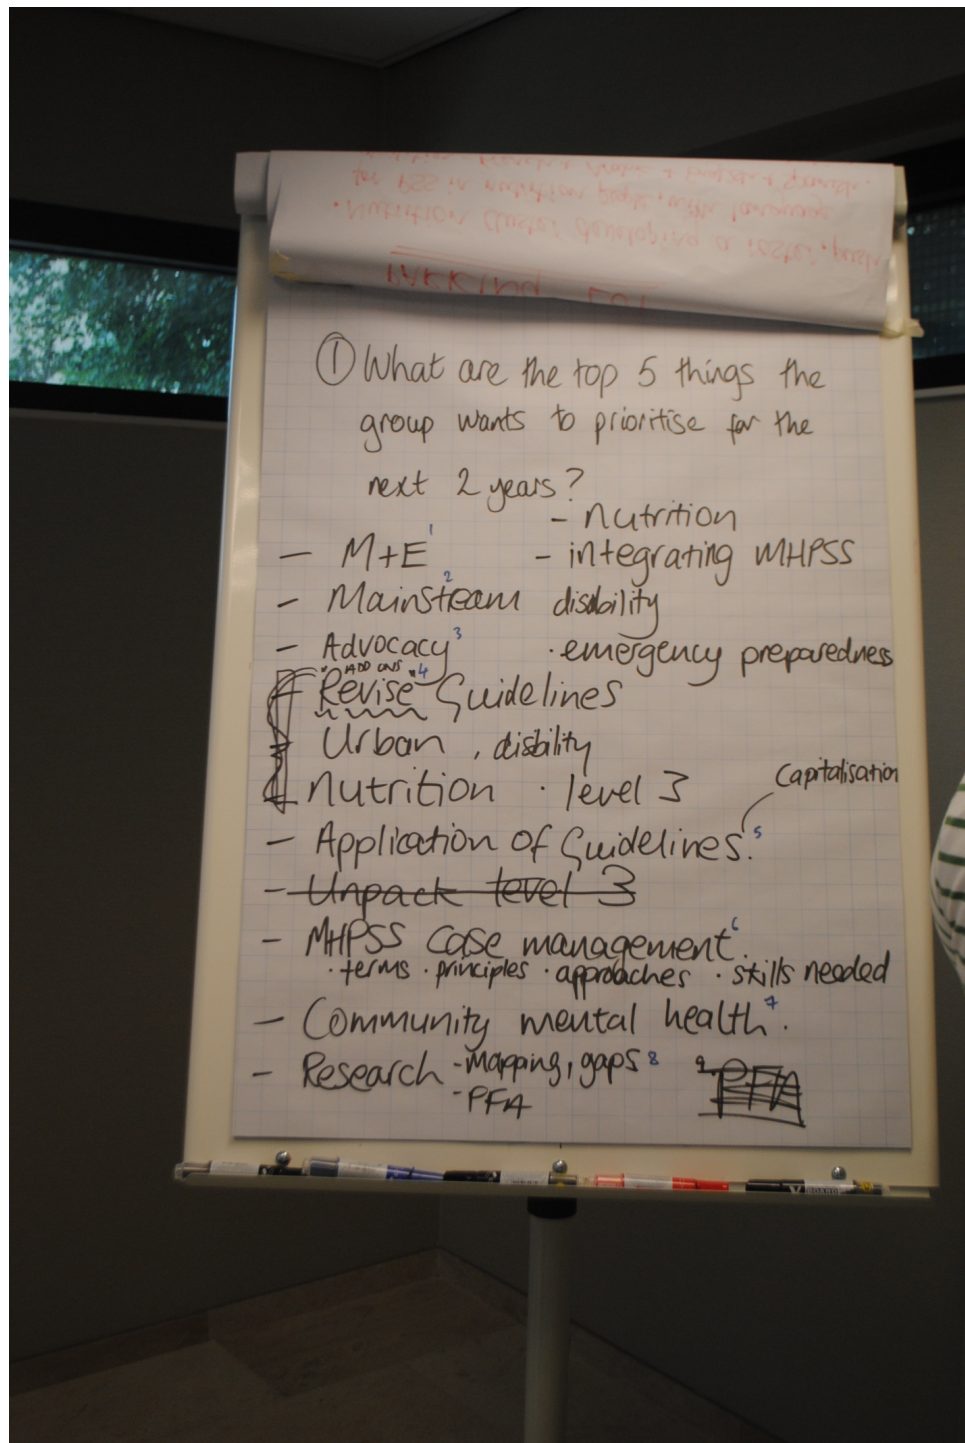 PARKING LOT
• Nutrition Cluster developing a roster, push
for PSS in nutrition people, with language
① What are the top 5 things the
group wants to prioritise for the
next 2 years?
- nutrition
- M+E 1 - integrating MHPSS
- Mainstream 2 disability
- Advocacy 3 · emergency preparedness
"ADD ONS" 4
- Revise Guidelines
- Urban , disbility
- Nutrition · level 3
Capitalisation
- Application of Guidelines. 5
- Unpack level 3
- MHPSS case management. 6
· terms · principles · approaches · skills needed
- Community mental health 7.
- Research - Mapping, gaps 8
- PFA
9. PFA